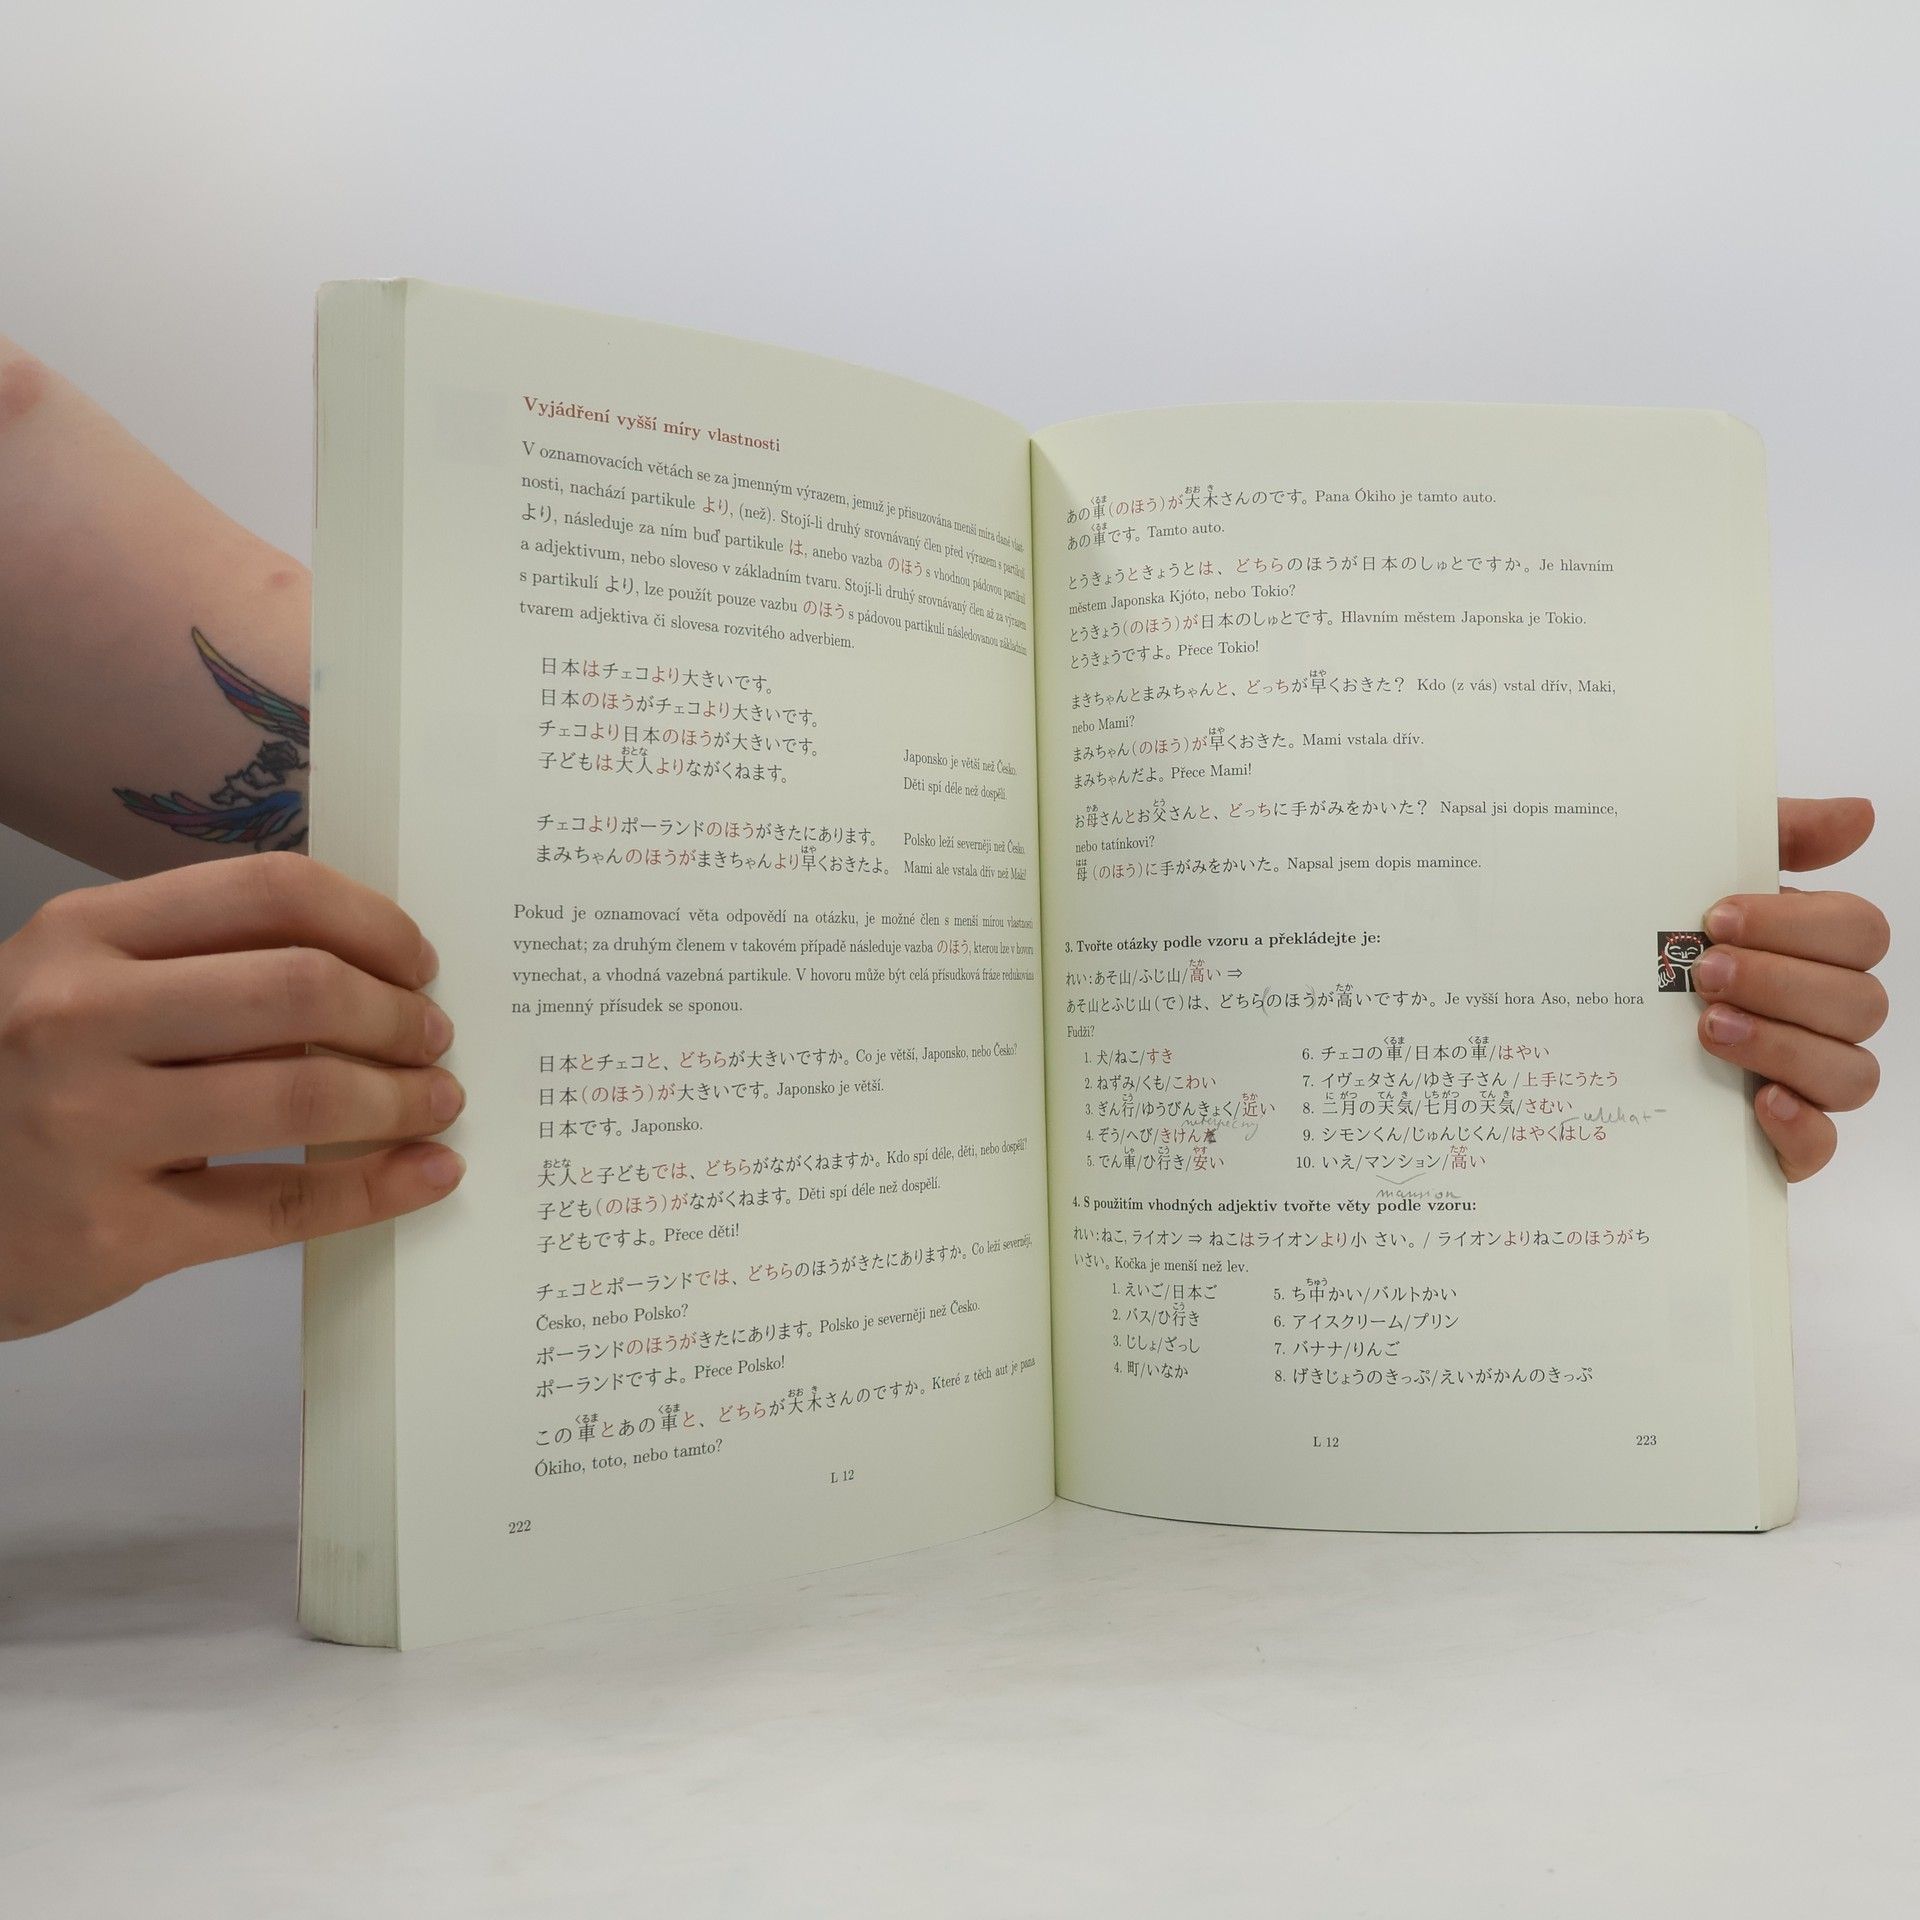 Vyjádření vyšší míry vlastnosti
V oznamovacích větách se za jmenným výrazem, jemuž je přisuzována menší míra dané vlast-
nosti, nachází partikule より, (než). Stojí-li druhý srovnávaný člen před výrazem s partikulí
より, následuje za ním buď partikule は, anebo vazba のほう s vhodnou pádovou partikulí
a adjektivum, nebo sloveso v základním tvaru. Stojí-li druhý srovnávaný člen až za výrazem
s partikulí より, lze použít pouze vazbu のほう s pádovou partikulí následovanou základním
tvarem adjektiva či slovesa rozvitého adverbiem.
日本はチェコより大きいです。
日本のほうがチェコより大きいです。
チェコより日本のほうが大きいです。 Japonsko je větší než Česko.
子どもは大人よりながくねます。 Děti spí déle než dospělí.
おとな
チェコよりポーランドのほうがきたにあります。 Polsko leží severněji než Česko.
まみちゃんのほうがまきちゃんより早くおきたよ。 Mami ale vstala dřív než Maki!
はや
Pokud je oznamovací věta odpovědí na otázku, je možné člen s menší mírou vlastnosti
vynechat; za druhým členem v takovém případě následuje vazba のほう, kterou lze v hovoru
vynechat, a vhodná vazebná partikule. V hovoru může být celá přísudková fráze redukována
na jmenný přísudek se sponou.
日本とチェコと、どちらが大きいですか。Co je větší, Japonsko, nebo Česko?
日本(のほう)が大きいです。Japonsko je větší.
日本です。Japonsko.
おとな
大人と子どもでは、どちらがながくねますか。Kdo spí déle, děti, nebo dospělí?
子ども(のほう)がながくねます。Děti spí déle než dospělí.
子どもですよ。Přece děti!
チェコとポーランドでは、どちらのほうがきたにありますか。Co leží severněji,
Česko, nebo Polsko?
ポーランドのほうがきたにあります。Polsko je severněji než Česko.
ポーランドですよ。Přece Polsko!
くるま くるま おお き
この車とあの車と、どちらが大木さんのですか。Které z těch aut je pana
Ókiho, toto, nebo tamto?
L 12
222
くるま おお き
あの車(のほう)が大木さんのです。Pana Ókiho je tamto auto.
くるま
あの車です。Tamto auto.
とうきょうときょうとは、どちらのほうが日本のしゅとですか。Je hlavním
městem Japonska Kjóto, nebo Tokio?
とうきょう(のほう)が日本のしゅとです。Hlavním městem Japonska je Tokio.
とうきょうですよ。Přece Tokio!
はや
まきちゃんとまみちゃんと、どっちが早くおきた? Kdo (z vás) vstal dřív, Maki,
nebo Mami?
はや
まみちゃん(のほう)が早くおきた。Mami vstala dřív.
まみちゃんだよ。Přece Mami!
かあ とう
お母さんとお父さんと、どっちに手がみをかいた? Napsal jsi dopis mamince,
nebo tatínkovi?
はは
母(のほう)に手がみをかいた。Napsal jsem dopis mamince.
3. Tvořte otázky podle vzoru a překládejte je:
たか
れい:あそ山/ふじ山/高い ⇒
たか
あそ山とふじ山(で)は、どちら(のほう)が高いですか。Je vyšší hora Aso, nebo hora
Fudži?
1. 犬/ねこ/すき
2. ねずみ/くも/こわい
こう ちか
3. ぎん行/ゆうびんきょく/近い
4. ぞう/へび/きけん
しゃ こう やす
5. でん車/ひ行き/安い
くるま くるま
6. チェコの車/日本の車/はやい
7. イヴェタさん/ゆき子さん /上手にうたう
に がつ てん き しちがつ てん き
8. 二月の天気/七月の天気/さむい
9. シモンくん/じゅんじくん/はやくはしる
たか
10. いえ/マンション/高い
mansion
4. S použitím vhodných adjektiv tvořte věty podle vzoru:
れい:ねこ, ライオン ⇒ ねこはライオンより小 さい。/ ライオンよりねこのほうがち
いさい。Kočka je menší než lev.
1. えいご/日本ご
こう
2. バス/ひ行き
3. じしょ/ざっし
4. 町/いなか
ちゅう
5. ち中かい/バルトかい
6. アイスクリーム/プリン
7. バナナ/りんご
8. げきじょうのきっぷ/えいがかんのきっぷ
L 12
223